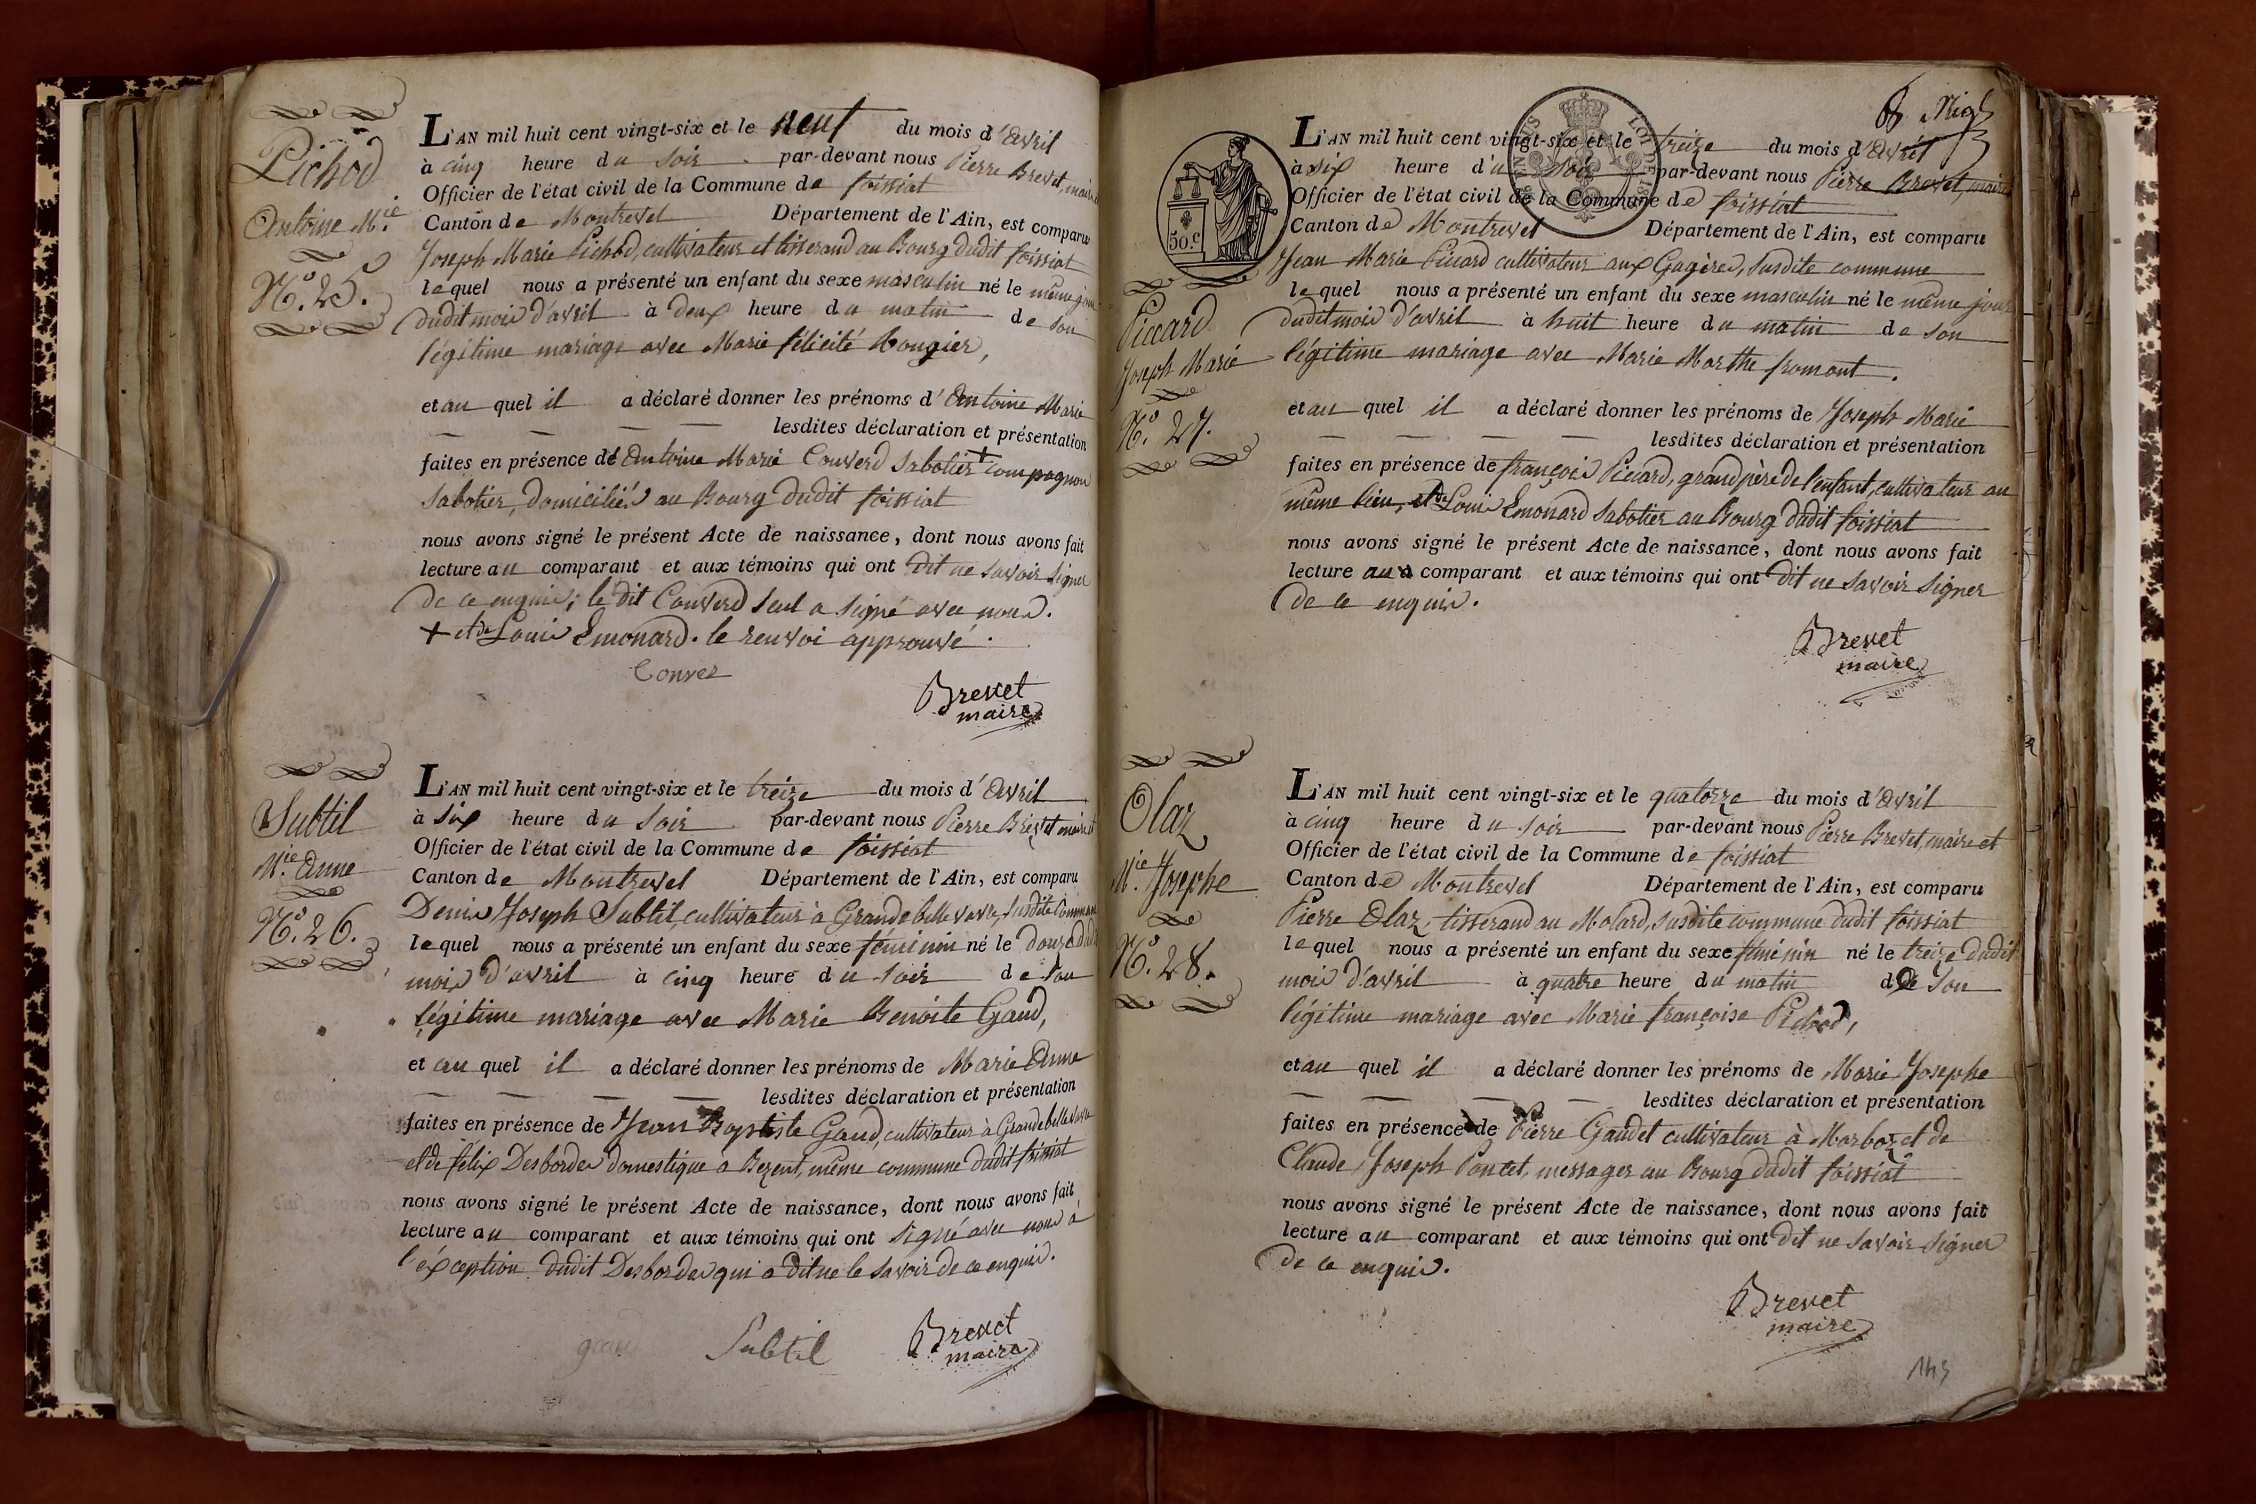 Pichod
Antoine M.ie
N.o 25.
L'AN mil huit cent vingt-six et le neuf du mois d'avril
à cinq heure du soir par-devant nous Pierre Brevet, maire
Officier de l'état civil de la Commune de foissiat
Canton de Montrevel Département de l'Ain, est comparu
Joseph Marie Pichod, cultivateur et tisserand au Bourg dudit foissiat
lequel nous a présenté un enfant du sexe masculin né le même jour
dudit mois d'avril à deux heure du matin de son
légitime mariage avec Marie félicité Rougier,
et au quel il a déclaré donner les prénoms d'Antoine Marie
lesdites déclaration et présentation
faites en présence de Antoine Marie Couverd sabotier + compagnon
sabotier, domiciliés au Bourg dudit foissiat
nous avons signé le présent Acte de naissance, dont nous avons fait
lecture au comparant et aux témoins qui ont dit ne savoir signer
de ce enquis; le dit Couverd seul a signé avec nous.
+ et de Louis Emonard. le renvoi approuvé.
Brevet
maire
Subtil
M.ie Anne
N.o 26.
L'AN mil huit cent vingt-six et le treize du mois d'avril
à six heure du soir par-devant nous Pierre Brevet maire et
Officier de l'état civil de la Commune de foissiat
Canton de Montrevel Département de l'Ain, est comparu
Denis Joseph Subtil, cultivateur à Grande bellevavre, susdite Commune
lequel nous a présenté un enfant du sexe féminin né le douze dudit
mois d'avril à cinq heure du soir de son
légitime mariage avec Marie Benoite Gaud,
et au quel il a déclaré donner les prénoms de Marie Anne
lesdites déclaration et présentation
faites en présence de Jean Baptiste Gaud, cultivateur à Grandebellevavre
et de félix Desbordes domestique à Bezent, même commune dudit foissiat
nous avons signé le présent Acte de naissance, dont nous avons fait
lecture au comparant et aux témoins qui ont signé avec nous à
l'éxception dudit Desbordes qui a dit ne le savoir de ce enquis.
Subtil
Brevet
maire
50.c
Piccard
Joseph Marie
N.o 27.
L'AN mil huit cent vingt-six et le treize du mois d'avril
à six heure d'u soir par-devant nous Pierre Brevet, maire
Officier de l'état civil de la Commune de foissiat
Canton de Montrevel Département de l'Ain, est comparu
Jean Marie Piccard cultivateur aux Gagères, susdite commune
lequel nous a présenté un enfant du sexe masculin né le même jour
dudit mois d'avril à huit heure du matin de son
légitime mariage avec Marie Marthe fromont.
et au quel il a déclaré donner les prénoms de Joseph Marie
lesdites déclaration et présentation
faites en présence de françois Piccard, grand père de l'enfant, cultivateur au
même lieu, et de Louis Emonard sabotier au Bourg dudit foissiat
nous avons signé le présent Acte de naissance, dont nous avons fait
lecture au comparant et aux témoins qui ont dit ne savoir signer
de ce enquis.
Brevet
maire
Olaz
M.ie Josephe
N.o 28.
L'AN mil huit cent vingt-six et le quatorze du mois d'avril
à cinq heure du soir par-devant nous Pierre Brevet, maire et
Officier de l'état civil de la Commune de foissiat
Canton de Montrevel Département de l'Ain, est comparu
Pierre Olaz, tisserand au Molard, susdite commune dudit foissiat
lequel nous a présenté un enfant du sexe féminin né le treize dudit
mois d'avril à quatre heure du matin de son
légitime mariage avec Marie françoise Pichod,
et au quel il a déclaré donner les prénoms de Marie Josephe
lesdites déclaration et présentation
faites en présence de Pierre Gaudet cultivateur à Marboz et de
Claude Joseph Poncet, messager au Bourg dudit foissiat
nous avons signé le présent Acte de naissance, dont nous avons fait
lecture au comparant et aux témoins qui ont dit ne savoir signer
de ce enquis.
Brevet
maire